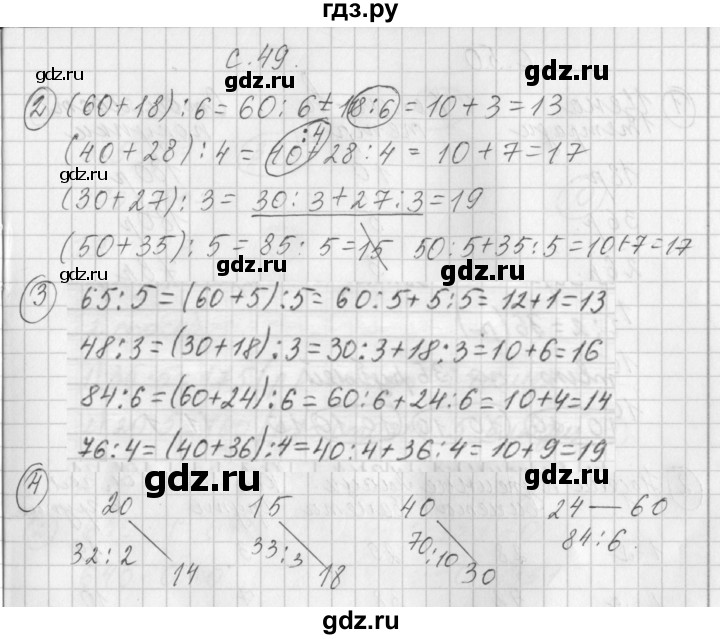 гдз.ру
с. 49.
gdz.ru gdz.ru
② (60+18) : 6 = 60 : 6 + 18 : 6 = 10 + 3 = 13
:4
(40+28) : 4 = 40 + 28 : 4 = 10 + 7 = 17
gdz.ru
(30+27) : 3 = 30 : 3 + 27 : 3 = 19
(50+35) : 5 = 85 : 5 = 15 50 : 5 + 35 : 5 = 10+7 = 17
gdz.ru gdz.ru
③ 65 : 5 = (60+5) : 5 = 60 : 5 + 5 : 5 = 12+1 = 13
48 : 3 = (30+18) : 3 = 30 : 3 + 18 : 3 = 10+6 = 16
84 : 6 = (60+24) : 6 = 60 : 6 + 24 : 6 = 10+4 = 14
76 : 4 = (40+36) : 4 = 40 : 4 + 36 : 4 = 10+9 = 19
gdz.ru gdz.ru
④ 20 15 40 24 — 60
32 : 2 33 : 3 70 : 10 84 : 6.
14 18 30
gdz.ru gdz.ru
gdz.ru